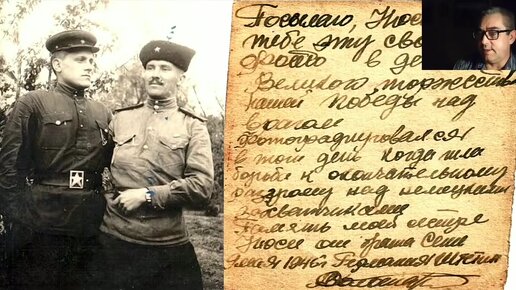 Посылаю, Люс
тебе эту сво
фото в де
Великого торжеств
нашей победы над
врагом
Фотографировался
в тот день когда шла
борьба к окончательному
разгрому над немецкими
захватчиками
Память моей сестре
Люси от брата Сени
мая 1945 г Германия Штетин